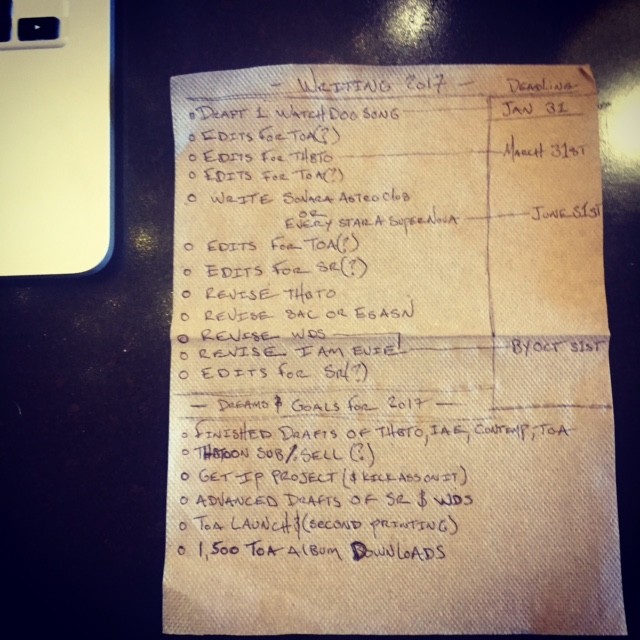 — WRITING 2017 — DEADLINE
o DRAFT 1 WATCH DOG SONG JAN 31
o EDITS FOR TOA(?)
o EDITS FOR THBTO MARCH 31ST
o EDITS FOR TOA(?)
o WRITE SONARA ASTROCLUB
OR
EVERY STAR A SUPERNOVA JUNE 31ST
o EDITS FOR TOA(?)
o EDITS FOR SR(?)
o REVISE THBTO
o REVISE SAC OR ESASN
o REVISE WDS
o REVISE I AM EVIE BY OCT 31ST
o EDITS FOR SR(?)
— DREAMS & GOALS FOR 2017 —
o FINISHED DRAFTS OF THBTO, IAE, CONTEMP, TOA
o ON SUB/SELL(?)
o GET IP PROJECT (& KICK ASS ON IT)
o ADVANCED DRAFTS OF SR & WDS
o TOA LAUNCH & (SECOND PRINTING)
o 1,500 TOA ALBUM DOWNLOADS